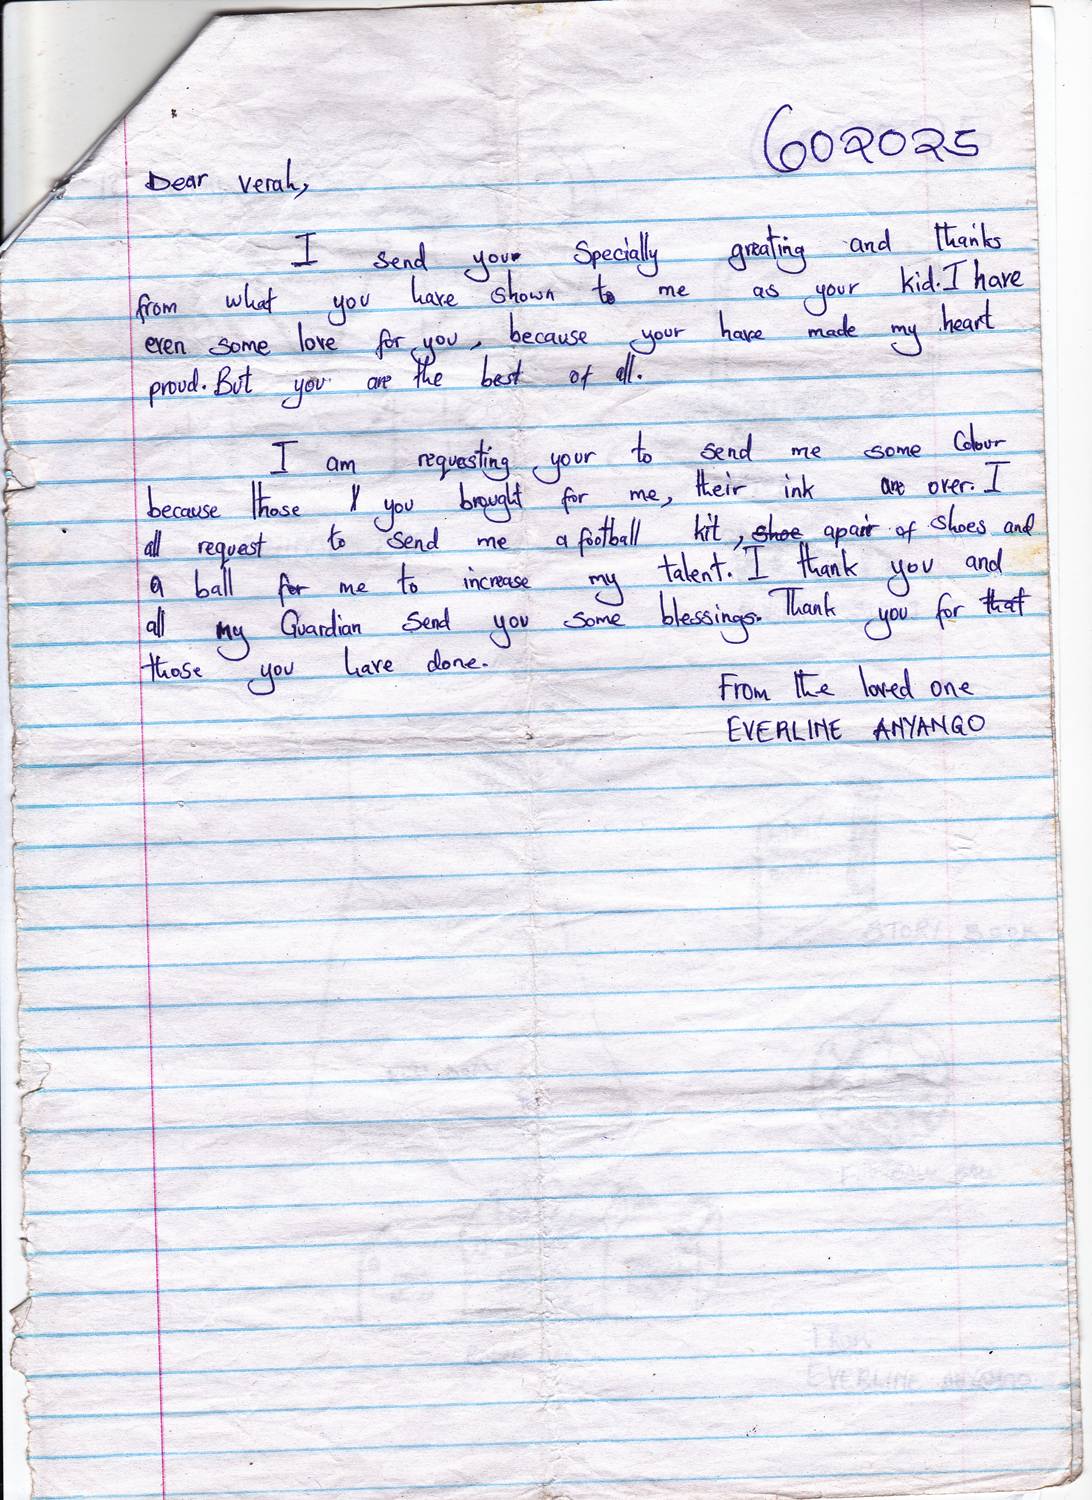 602025
Dear verah,
I send your Specially greating and thanks
from what you have shown to me as your kid. I have
even some love for you, because your have made my heart
proud. But you are the best of all.
I am requesting your to send me some Colour
because those you brought for me, their ink are over. I
all request to send me a football kit, shoe apair of shoes and
a ball for me to increase my talent. I thank you and
all my Guardian send you some blessings. Thank you for that
those you have done.
From the loved one
EVERLINE ANYANGO
STORY BOOK
From
EVERLINE ANYANGO